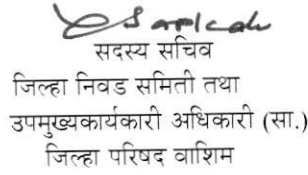 सदस्य सचिव
जिल्हा निवड समिती तथा
उपमुख्यकार्यकारी अधिकारी (सा.)
जिल्हा परिषद वाशिम